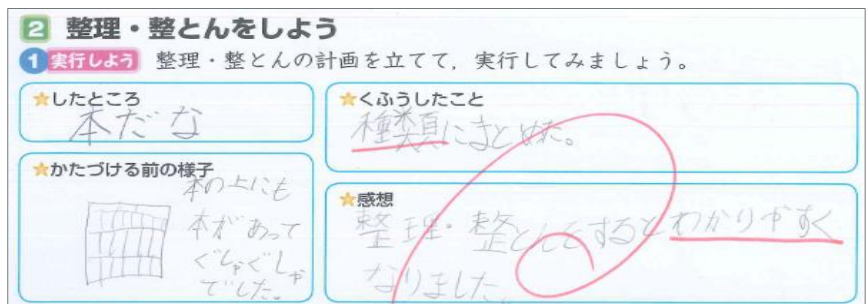 2 整理・整とんをしよう
1 実行しよう 整理・整とんの計画を立てて，実行してみましょう。
★したところ
本だな
★かたづける前の様子
本の上にも
本があって
ぐしゃぐしゃ
でした。
★くふうしたこと
種類にまとめた。
★感想
整理・整とんをするとわかりやすく
なりました。